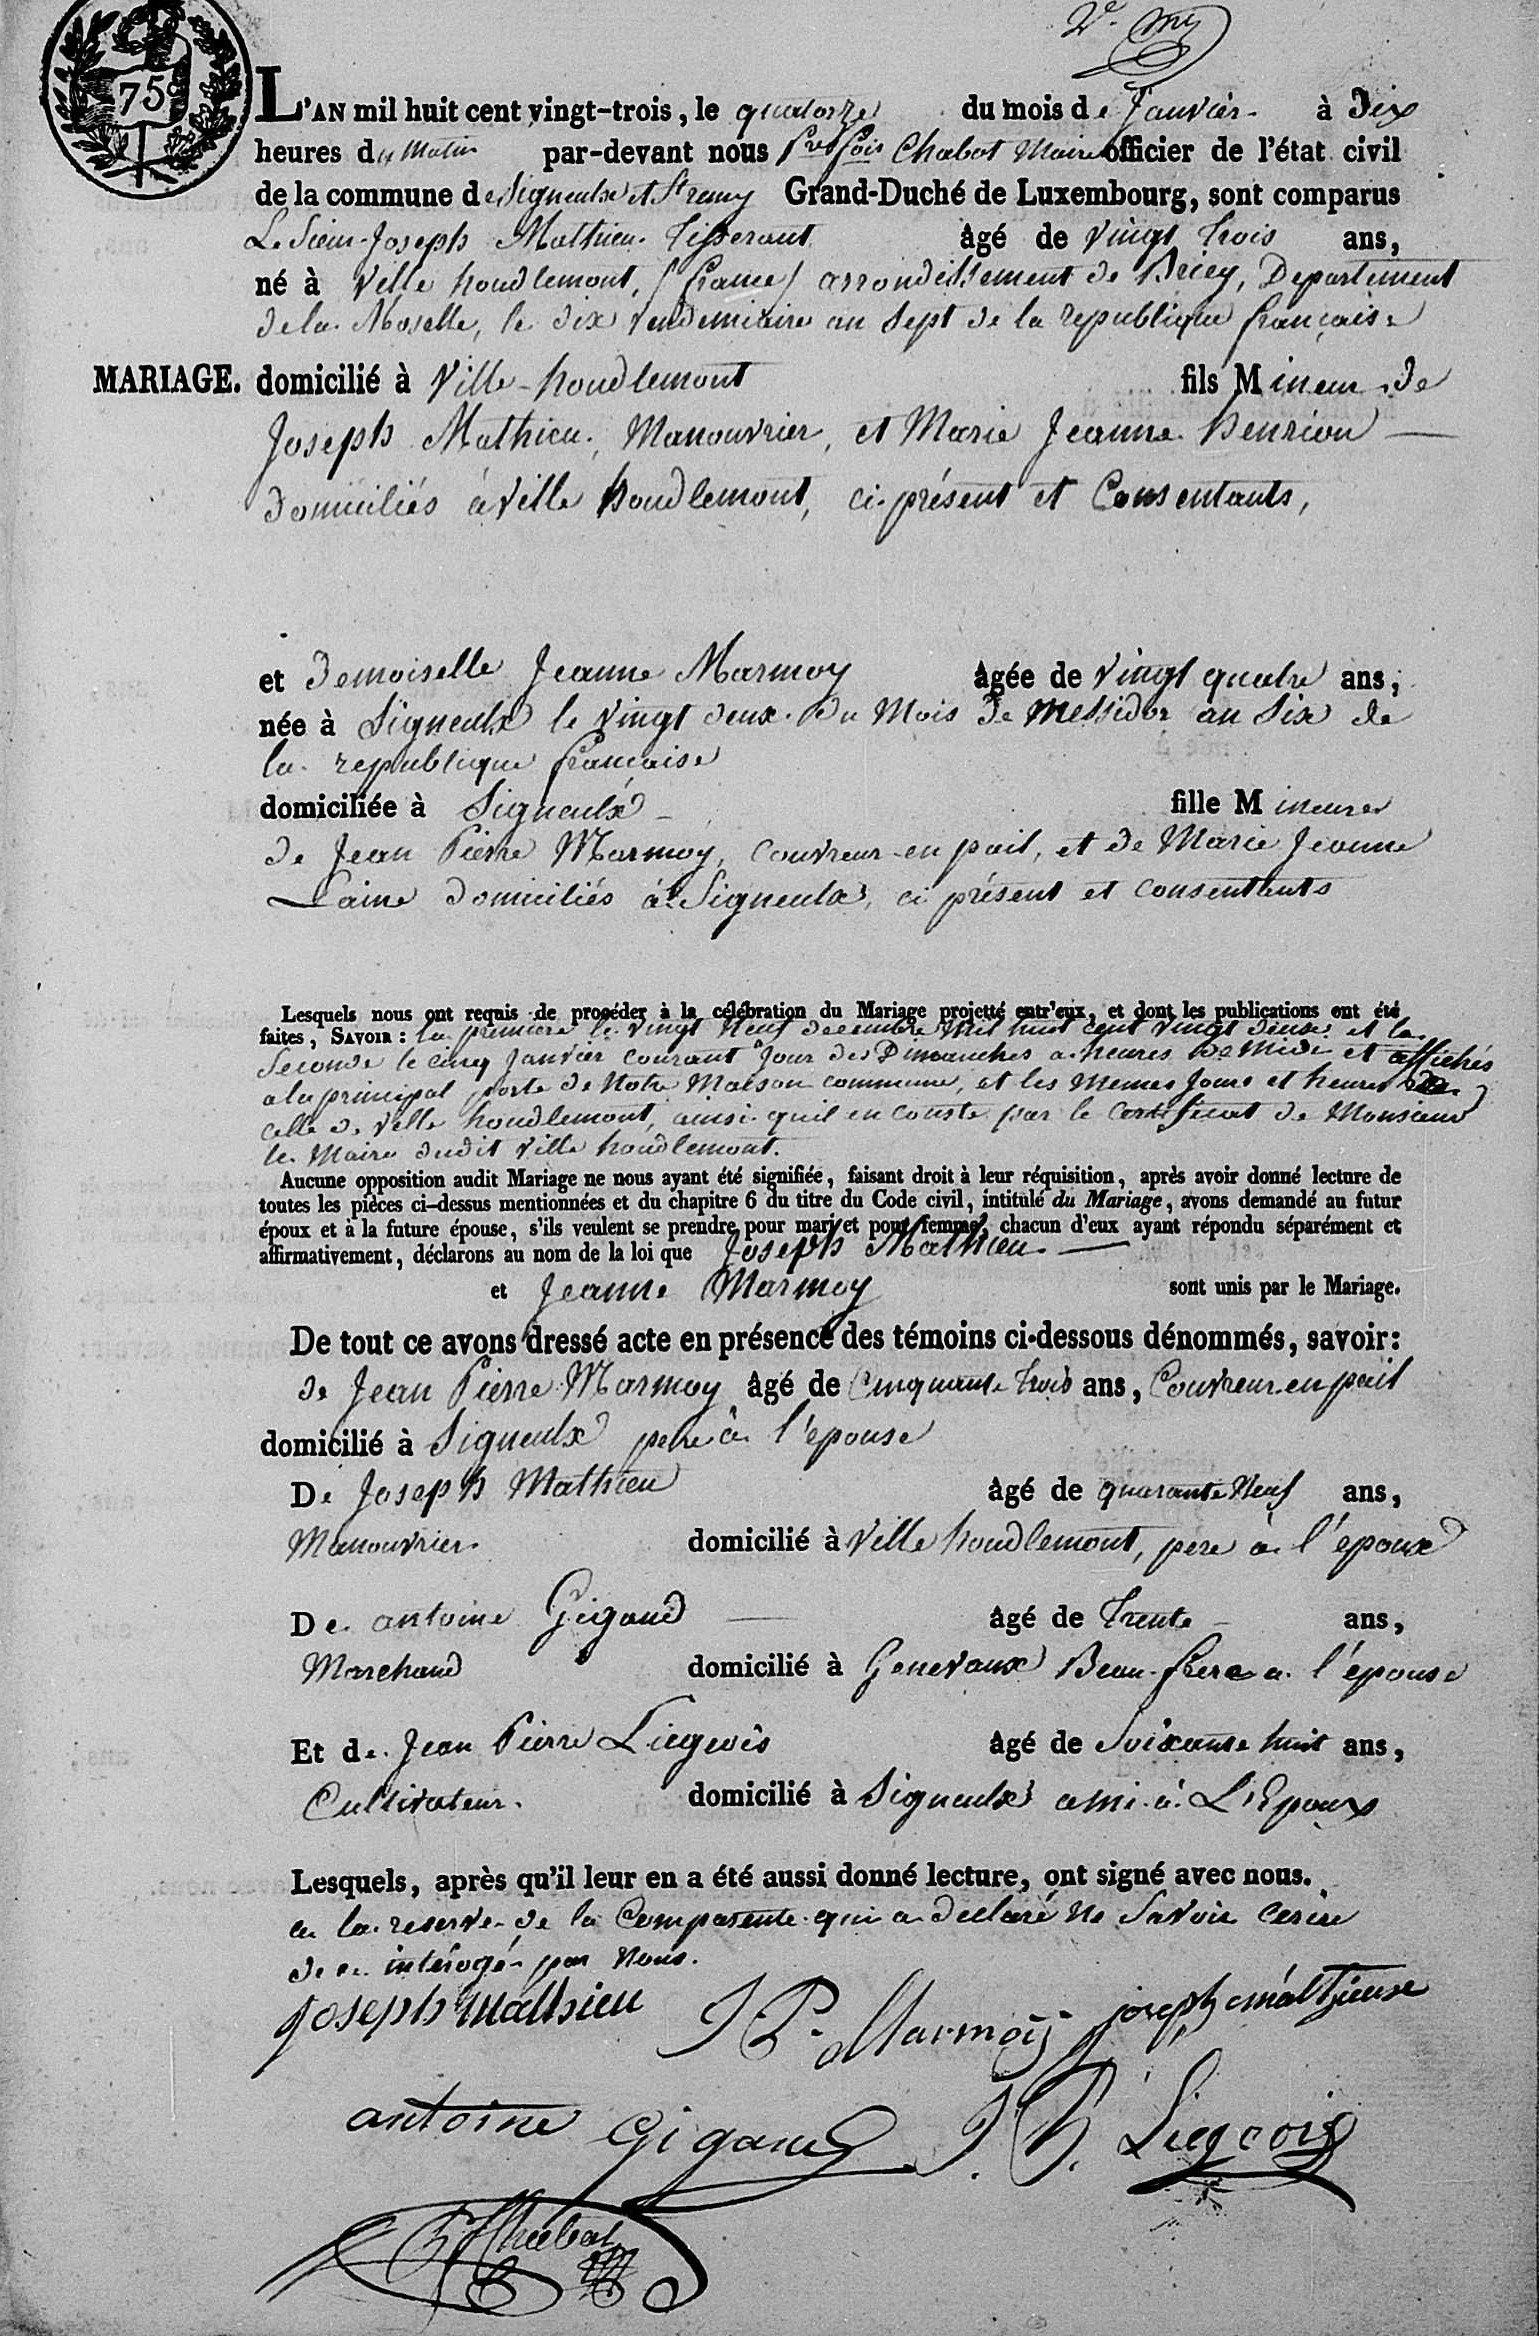 2e. my
75c
L'AN mil huit cent vingt-trois, le quatorze du mois de Janvier à Dix
heures du Matin par-devant nous Pre fois Chabot Maire officier de l'état civil
de la commune de Signeulx et St remy Grand-Duché de Luxembourg, sont comparus
Le Sieur Joseph Mathieu Tisserant âgé de vingt trois ans,
né à Ville houdlemont, (france) arrondissement de Briey, Departement
de la Moselle, le dix vendemiaire an Sept de la republique française
MARIAGE. domicilié à Ville-houdlemont fils Mineur de
Joseph Mathieu, Manouvrier, et Marie Jeanne henrion
domiciliés à Ville houdlemont, ci-présent et Consentants,
et Demoiselle Jeanne Marmoy âgée de vingt quatre ans,
née à Signeulx le vingt deux du Mois de Messidor an Six de
la republique francaise
domiciliée à Signeulx fille Mineure
de Jean Pierre Marmoy, couvreur en pail, et de Marie Jeanne
Laine domiciliés à Signeulx, ci présent et consentents
Lesquels nous ont requis de procéder à la célébration du Mariage projetté entr'eux, et dont les publications ont été
faites, SAVOIR : la premiere le vingt Neuf decembre mil huit cent vingt deux et la
Seconde le cinq Janvier courant Jour des Dimanches a heures de Midi et affichés
a la principal porte de Notre Maison commune, et les memes Jours et heures
celle de Ville houdlemont, ainsi quil en conste par le certificat de Monsieur
le Maire dudit Ville houdlemont.
Aucune opposition audit Mariage ne nous ayant été signifiée, faisant droit à leur réquisition, après avoir donné lecture de
toutes les pièces ci-dessus mentionnées et du chapitre 6 du titre du Code civil, intitulé du Mariage, avons demandé au futur
époux et à la future épouse, s'ils veulent se prendre pour mari et pour femme, chacun d'eux ayant répondu séparément et
affirmativement, déclarons au nom de la loi que Joseph Mathieu
et Jeanne Marmoy sont unis par le Mariage.
De tout ce avons dressé acte en présence des témoins ci-dessous dénommés, savoir:
de Jean Pierre Marmoy âgé de Cinquante trois ans, Couvreur en pail
domicilié à Signeulx pere à l'epouse
De Joseph Mathieu âgé de quarante Neuf ans,
Manouvrier domicilié à Ville houdlemont, pere à l'époux
De antoine Gigand âgé de Trente ans,
Marchand domicilié à Genevaux Beau-frere a l'épouse
Et de Jean Pierre Liegeois âgé de Soixante huit ans,
Cultivateur. domicilié à Signeulx ami à L'Epoux
Lesquels, après qu'il leur en a été aussi donné lecture, ont signé avec nous.
a la reserve de la Comparente qui a declaré Ne Savoir ecrire
de ce intérogé par Nous.
joseph mathieu J P Marmoy joseph mathieuse
antoine Gigand J. P. Liegeois
Chabot